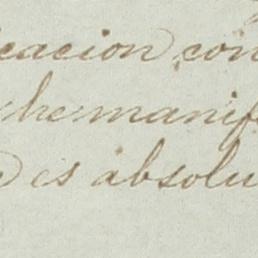 cacion con
he manif
es absolu